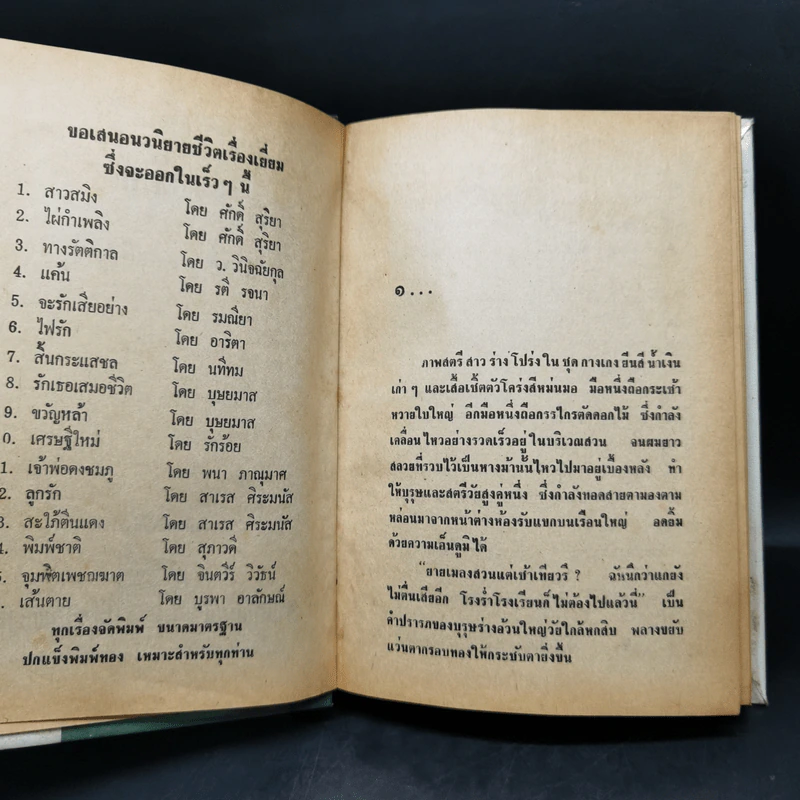 ขอเสนอนวนิยายชีวิตเรื่องเยี่ยม
ซึ่งจะออกในเร็วๆ นี้
1. สาวสมิง โดย ศักดิ์ สุริยา
2. ไผ่กำเพลิง โดย ศักดิ์ สุริยา
3. ทางรัตติกาล โดย ว. วินิจฉัยกุล
4. แค้น โดย รตี รจนา
5. จะรักเสียอย่าง โดย รมณียา
6. ไฟรัก โดย อาริตา
7. สิ้นกระแสชล โดย นทีทม
8. รักเธอเสมอชีวิต โดย บุษยมาส
9. ขวัญหล้า โดย บุษยมาส
0. เศรษฐีใหม่ โดย รักร้อย
1. เจ้าพ่อดงชมภู โดย พนา ภาณุมาศ
2. ลูกรัก โดย สาเรส ศิระมนัส
3. สะใภ้ตีนแดง โดย สาเรส ศิระมนัส
4. พิมพ์ชาติ โดย สุภาวดี
5. จุมพิตเพชฌฆาต โดย จินตวีร์ วิวัธน์
. เส้นตาย โดย บูรพา อาลักษณ์
ทุกเรื่องจัดพิมพ์ ขนาดมาตรฐาน
ปกแข็งพิมพ์ทอง เหมาะสำหรับทุกท่าน
๑...
ภาพสตรี สาว ร่าง โปร่ง ใน ชุด กางเกง ยีนสีน้ำเงิน
เก่า ๆ และเสื้อเชิ้ตตัวโคร่งสีหม่นมอ มือหนึ่งถือกระเช้า
หวายใบใหญ่ อีกมือหนึ่งถือกรรไกรตัดดอกไม้ ซึ่งกำลัง
เคลื่อนไหวอย่างรวดเร็วอยู่ในบริเวณสวน จนผมยาว
สลวยที่รวบไว้เป็นหางม้านั้นไหวไปมาอยู่เบื้องหลัง ทำ
ให้บุรุษและสตรีวัยสูงคู่หนึ่ง ซึ่งกำลังทอดสายตามองตาม
หล่อนมาจากหน้าต่างห้องรับแขกบนเรือนใหญ่ อดยิ้ม
ด้วยความเอ็นดูมิได้
"ยายเมลงสวนแต่เช้าเทียวรึ ? ฉันนึกว่าแกยัง
ไม่ตื่นเสียอีก โรงร่ำโรงเรียนก็ไม่ต้องไปแล้วนี่" เป็น
คำปรารภของบุรุษร่างอ้วนใหญ่วัยใกล้หกสิบ พลางขยับ
แว่นตากรอบทองให้กระชับตายิ่งขึ้น